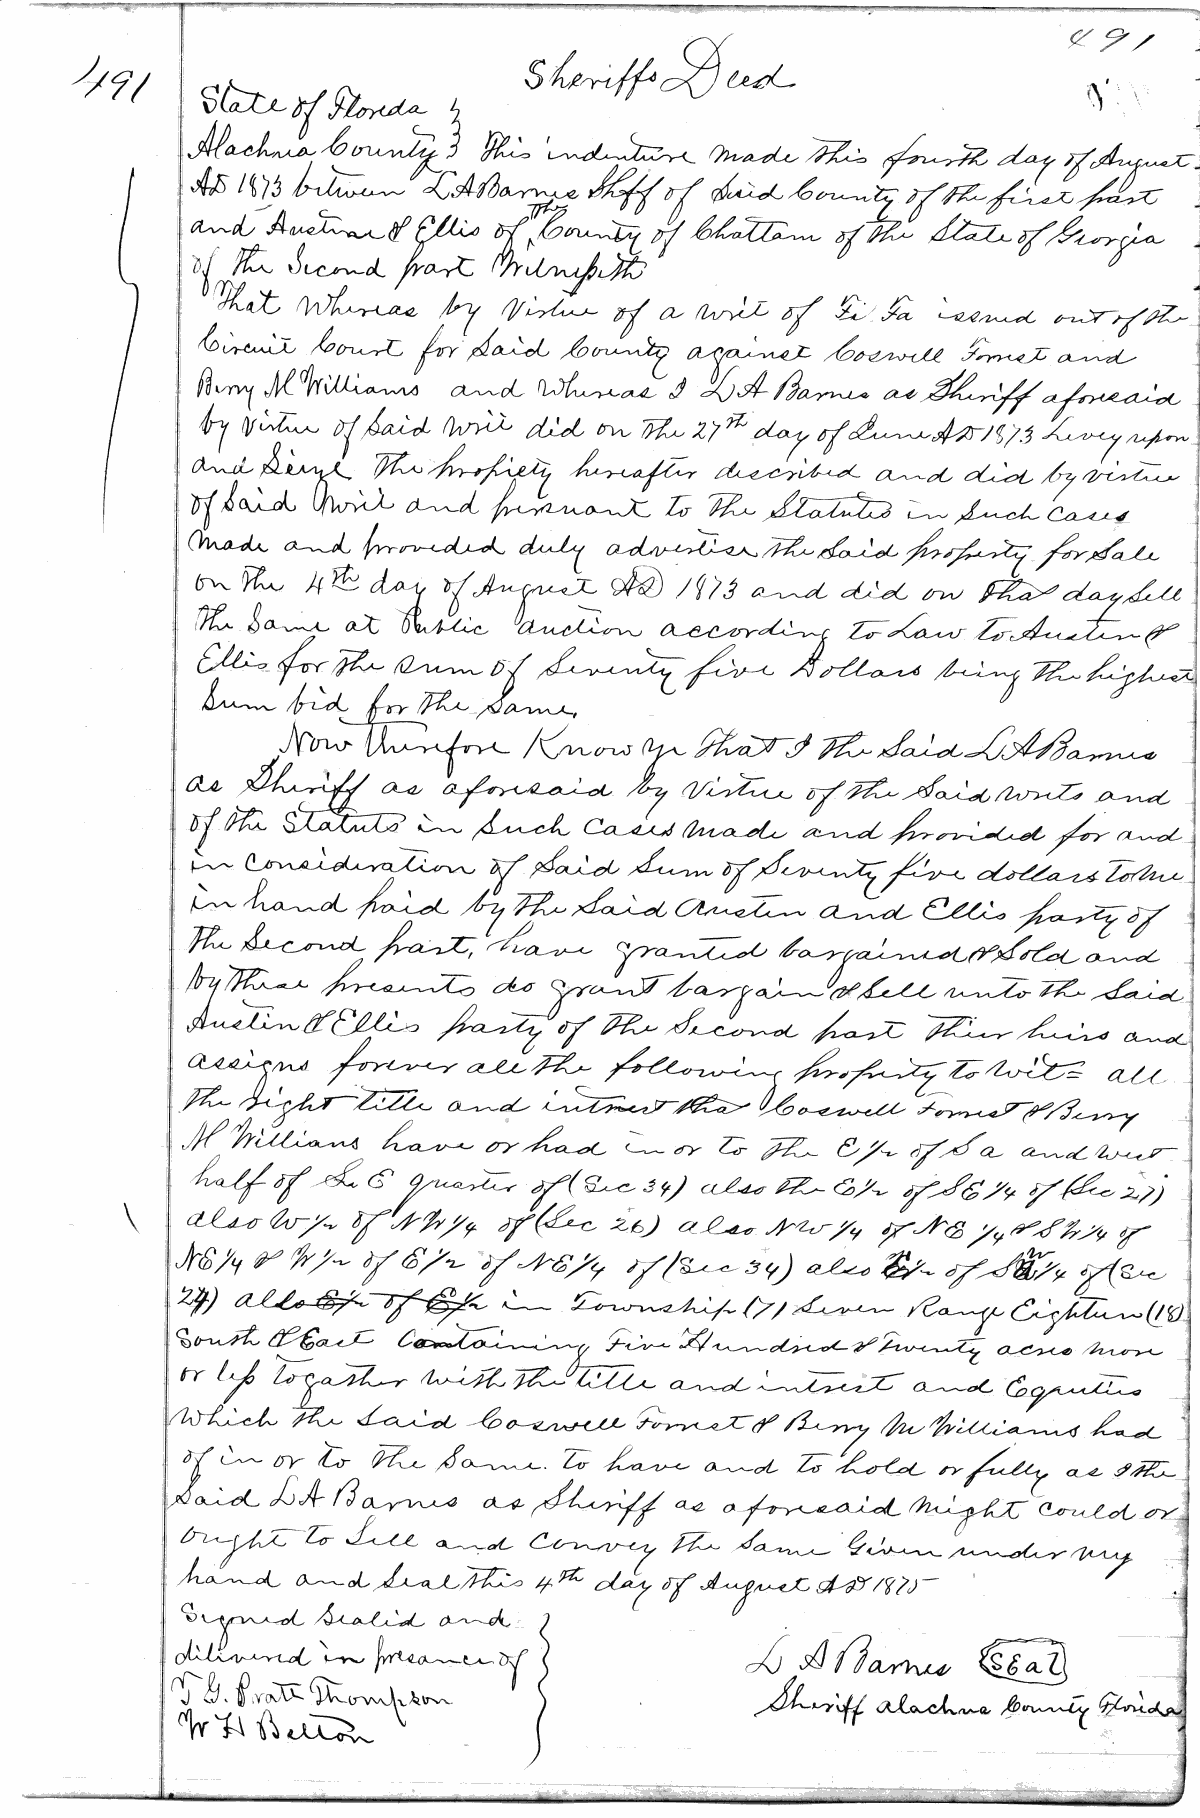 491
491
Sheriffs Deed
State of Florida }
Alachua County } This indenture made this fourth day of August
AD 1873 between L A Barnes Shff of Said County of the first part
and Austin & Ellis of the County of Chattam of the State of Georgia
of the Second part Witnesseth
That Whereas by Virtue of a writ of Fi Fa issued out of the
Circuit Court for Said County against Coswell Forrest and
Berry McWilliams and Whereas I L A Barnes as Sheriff aforesaid
by Virtue of Said Writ did on the 27th day of June AD 1873 Levey upon
and Seize The propiety hereafter described and did by virtue
of Said Writ and persuant to the Statutes in Such Cases
Made and proveded duly advertise the Said property for Sale
on the 4th day of August AD 1873 and did on that day Sell
the Same at Public auction according to Law to Austen &
Ellis for the Sum of Seventy five Dollars being the highest
Sum bid for the Same.
Now Therefore Know ye That I the Said L A Barnes
as Sheriff as aforesaid by Virtue of the Said writs and
of the Statuts in Such Cases Made and provided for and
in Consideration of Said Sum of Seventy five dollars to Me
in hand paid by the Said Austen and Ellis party of
the Second part, have granted bargained & Sold and
by these presents do grant bargain & Sell unto the Said
Austin & Ellis party of the Second part Their heirs and
assigns forever all the following property to Wit= all
the right title and intrest that Coswell Forrest & Berry
McWillians have or had in or to the E 1/2 of S a and West
half of S. E quarter of (Sec 34) also the E 1/2 of SE 1/4 of (Sec 27)
also W 1/2 of NW 1/4 of (Sec 26) also NW 1/4 of NE 1/4 & SW 1/4 of
NE 1/4 & W 1/2 of E 1/2 of NE 1/4 of (Sec 34) also E 1/2 of SW 1/4 of (Sec
24) also E 1/2 of E 1/2 in Township (7) Seven Range Eighteen (18)
South & East Containing Five Hundred & Twenty acres more
or less togather with the title and intrest and Equities
Which the Said Coswell Forrest & Berry McWilliams had
of in or to the Same. to have and to hold or fully as I the
Said L A Barnes as Sheriff as aforesaid Might Could or
Ought to Sell and Convey the Same Given under my
hand and Seal this 4th day of August AD 1875
Signed Sealid and
dilivered in presance of
T G. Pratt Thompson
W H Belton
L A Barnes Seal
Sheriff Alachua County Florida